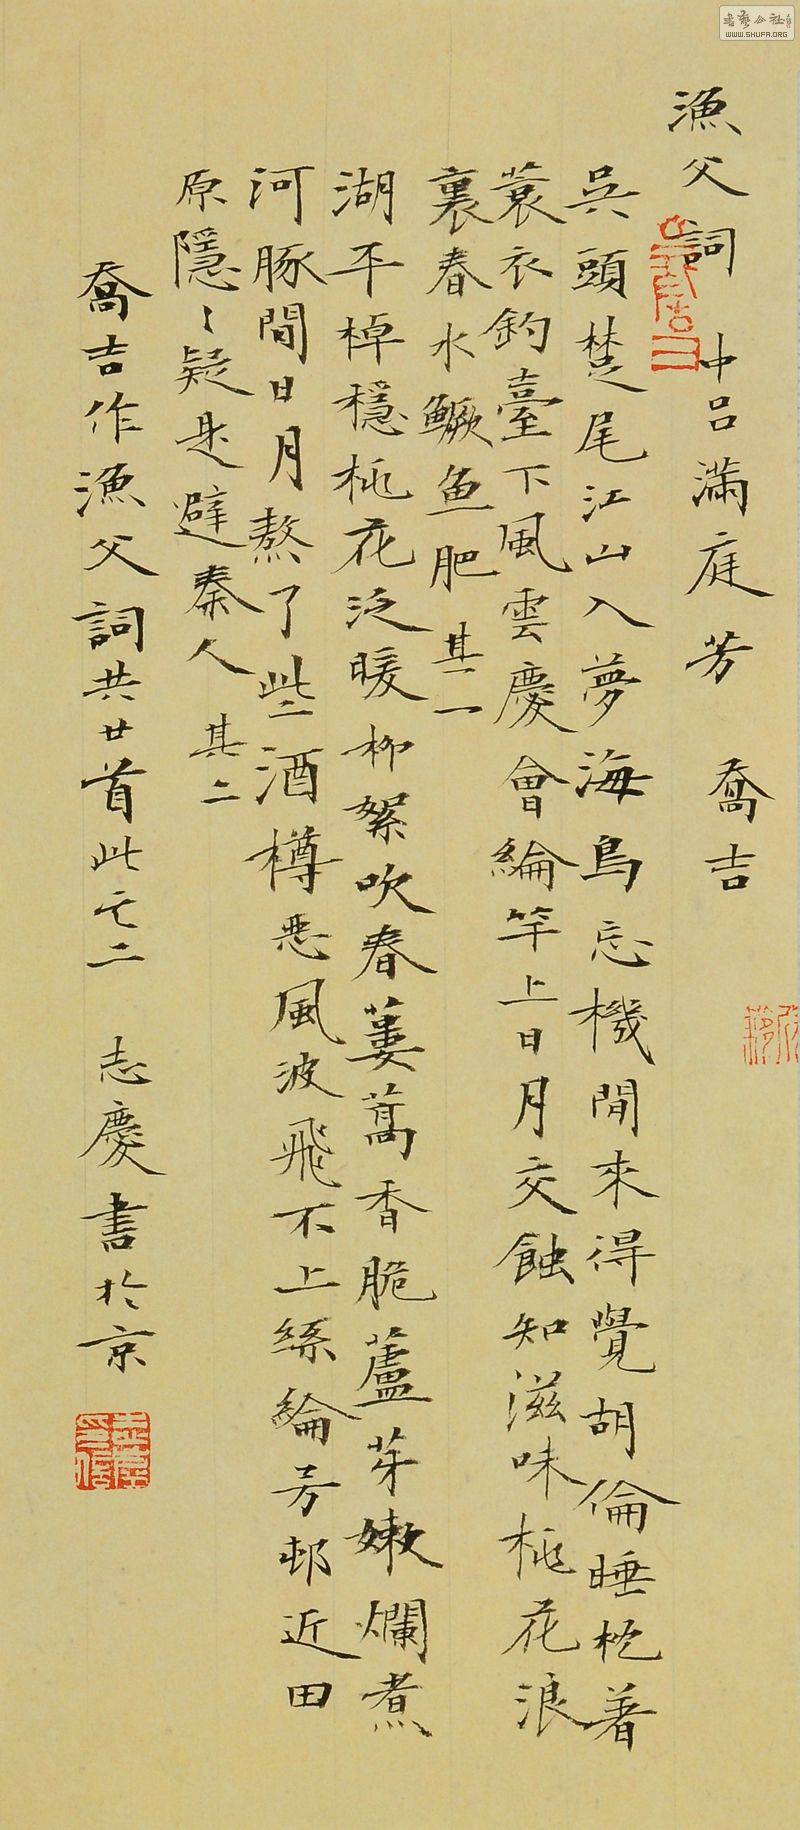 漁父詞 中呂滿庭芳 喬吉
吳頭楚尾江山入夢海鳥忘機閒來得覺胡倫睡枕著
蓑衣釣臺下風雲慶會綸竿上日月交蝕知滋味桃花浪
裏春水鱖鱼肥 其一
湖平棹穩桃花泛暖柳絮吹春蔞蒿香脆蘆芽嫩爛煮
河豚間日月熬了些酒樽惡風波飛不上絲綸芳邨近田
原隱〻疑是避秦人 其二
喬吉作漁父詞共廿首此其二 志慶書於京
WWW.SHUFA.ORG